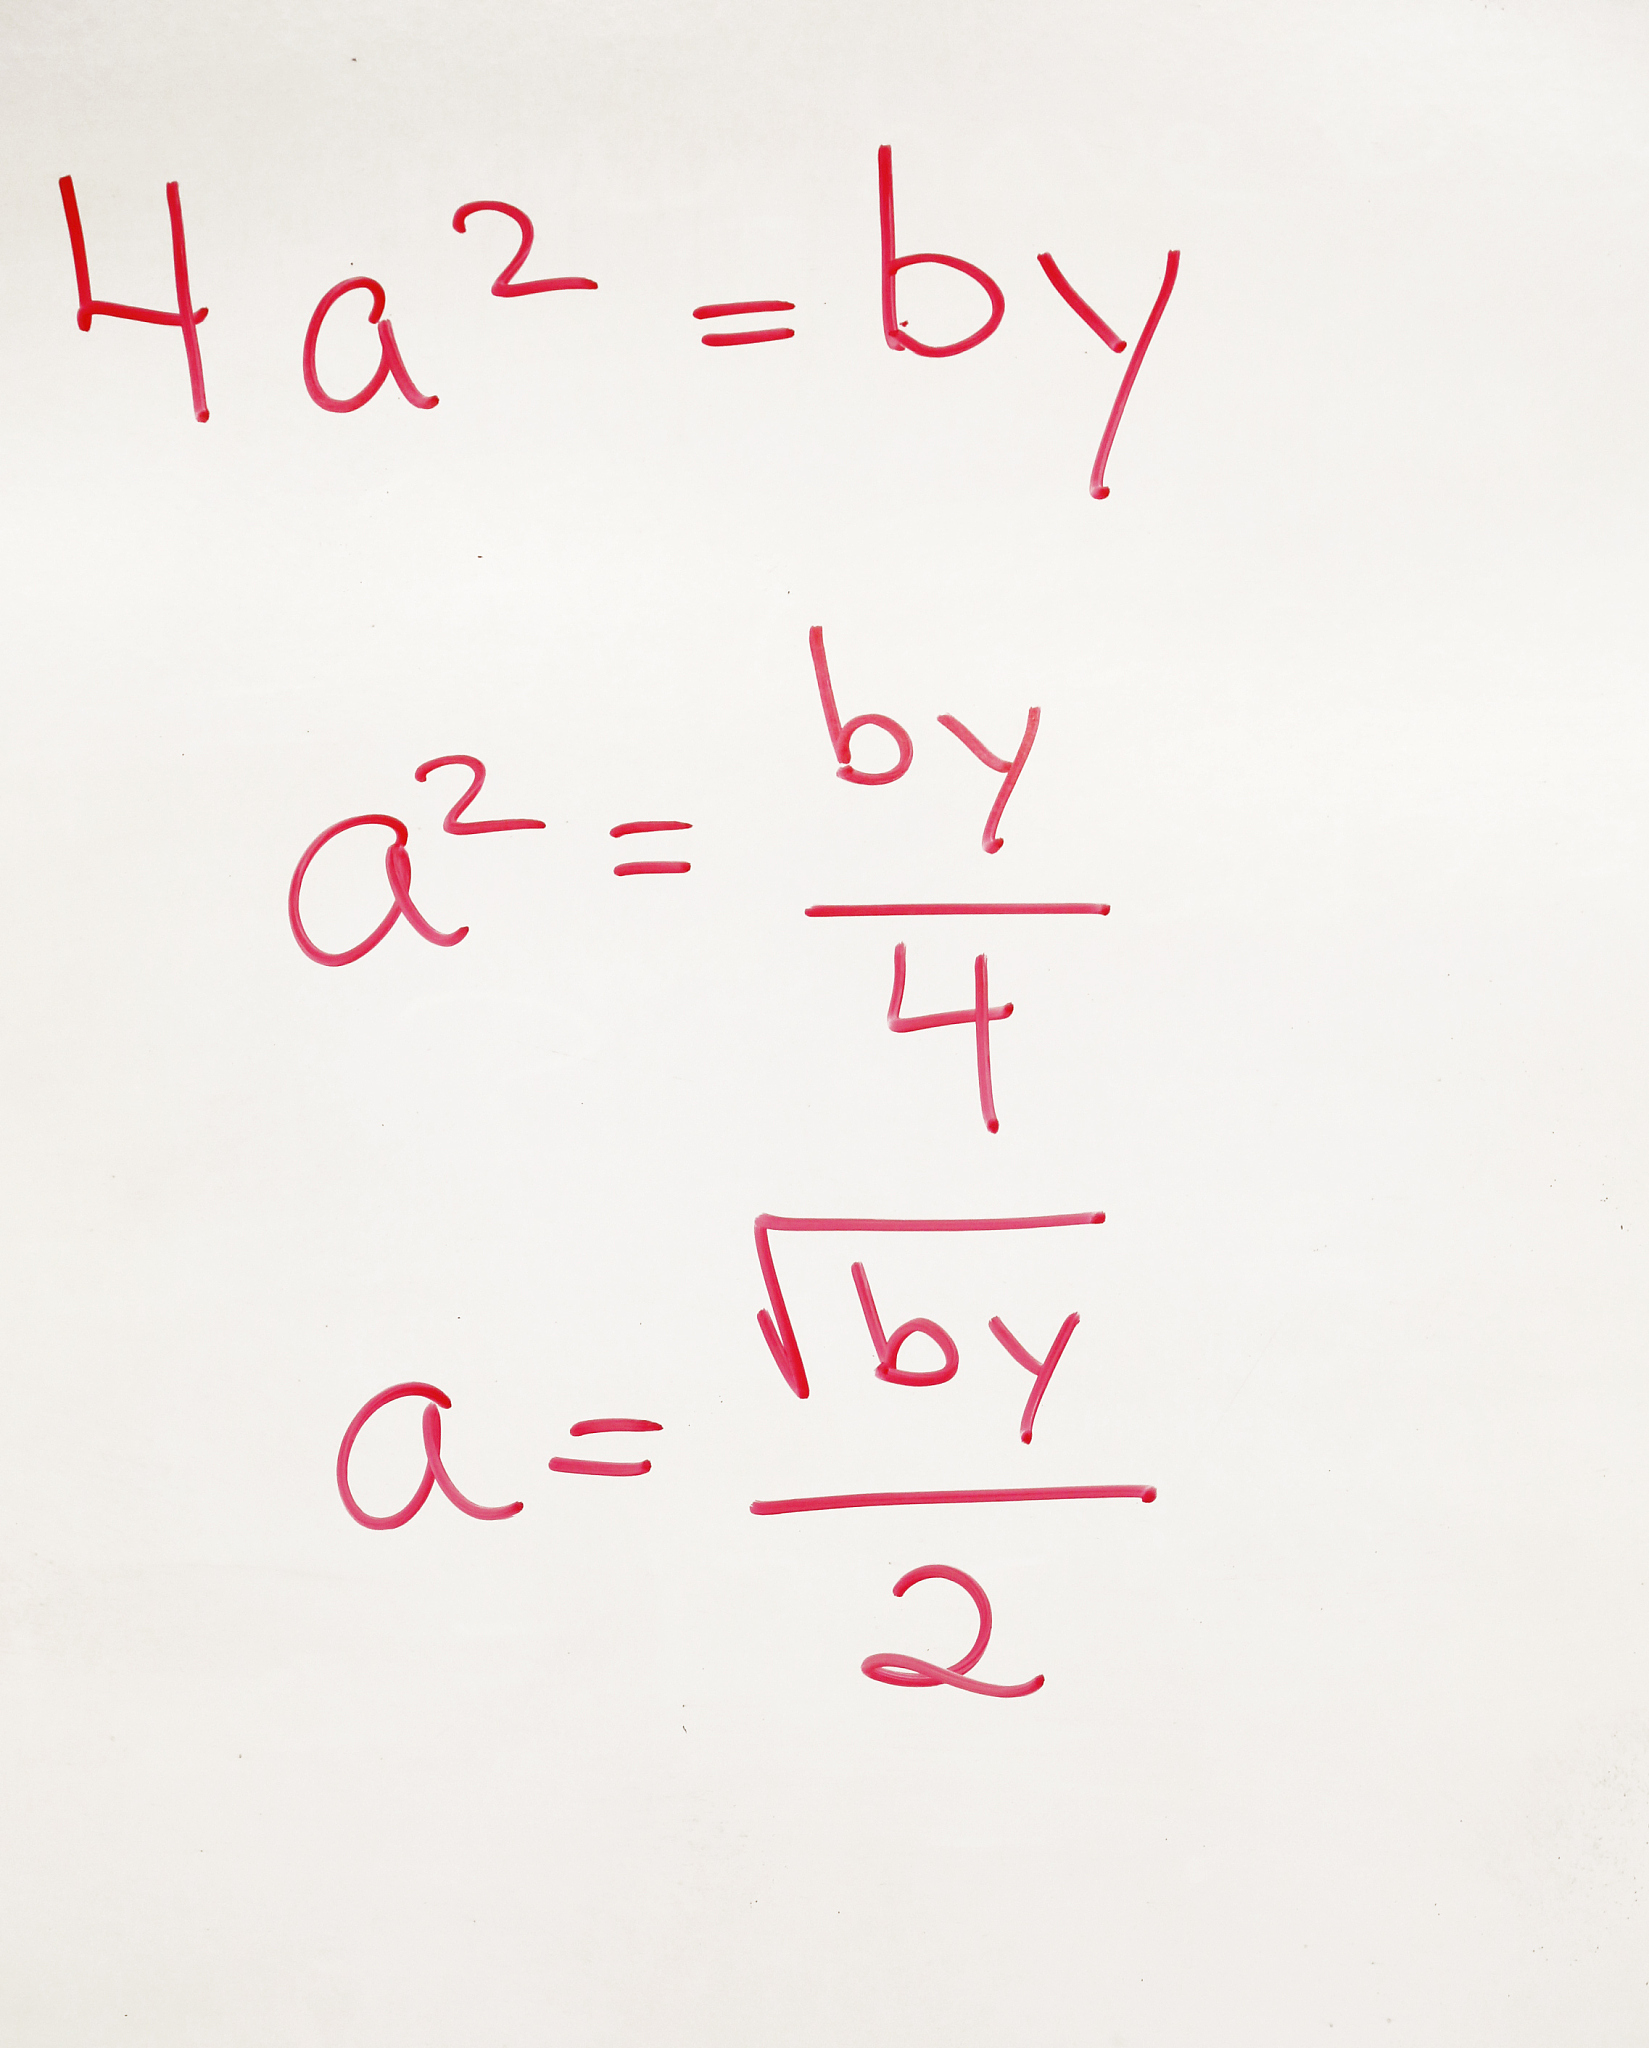 4a² = by
a² = by/4
a = √by/2